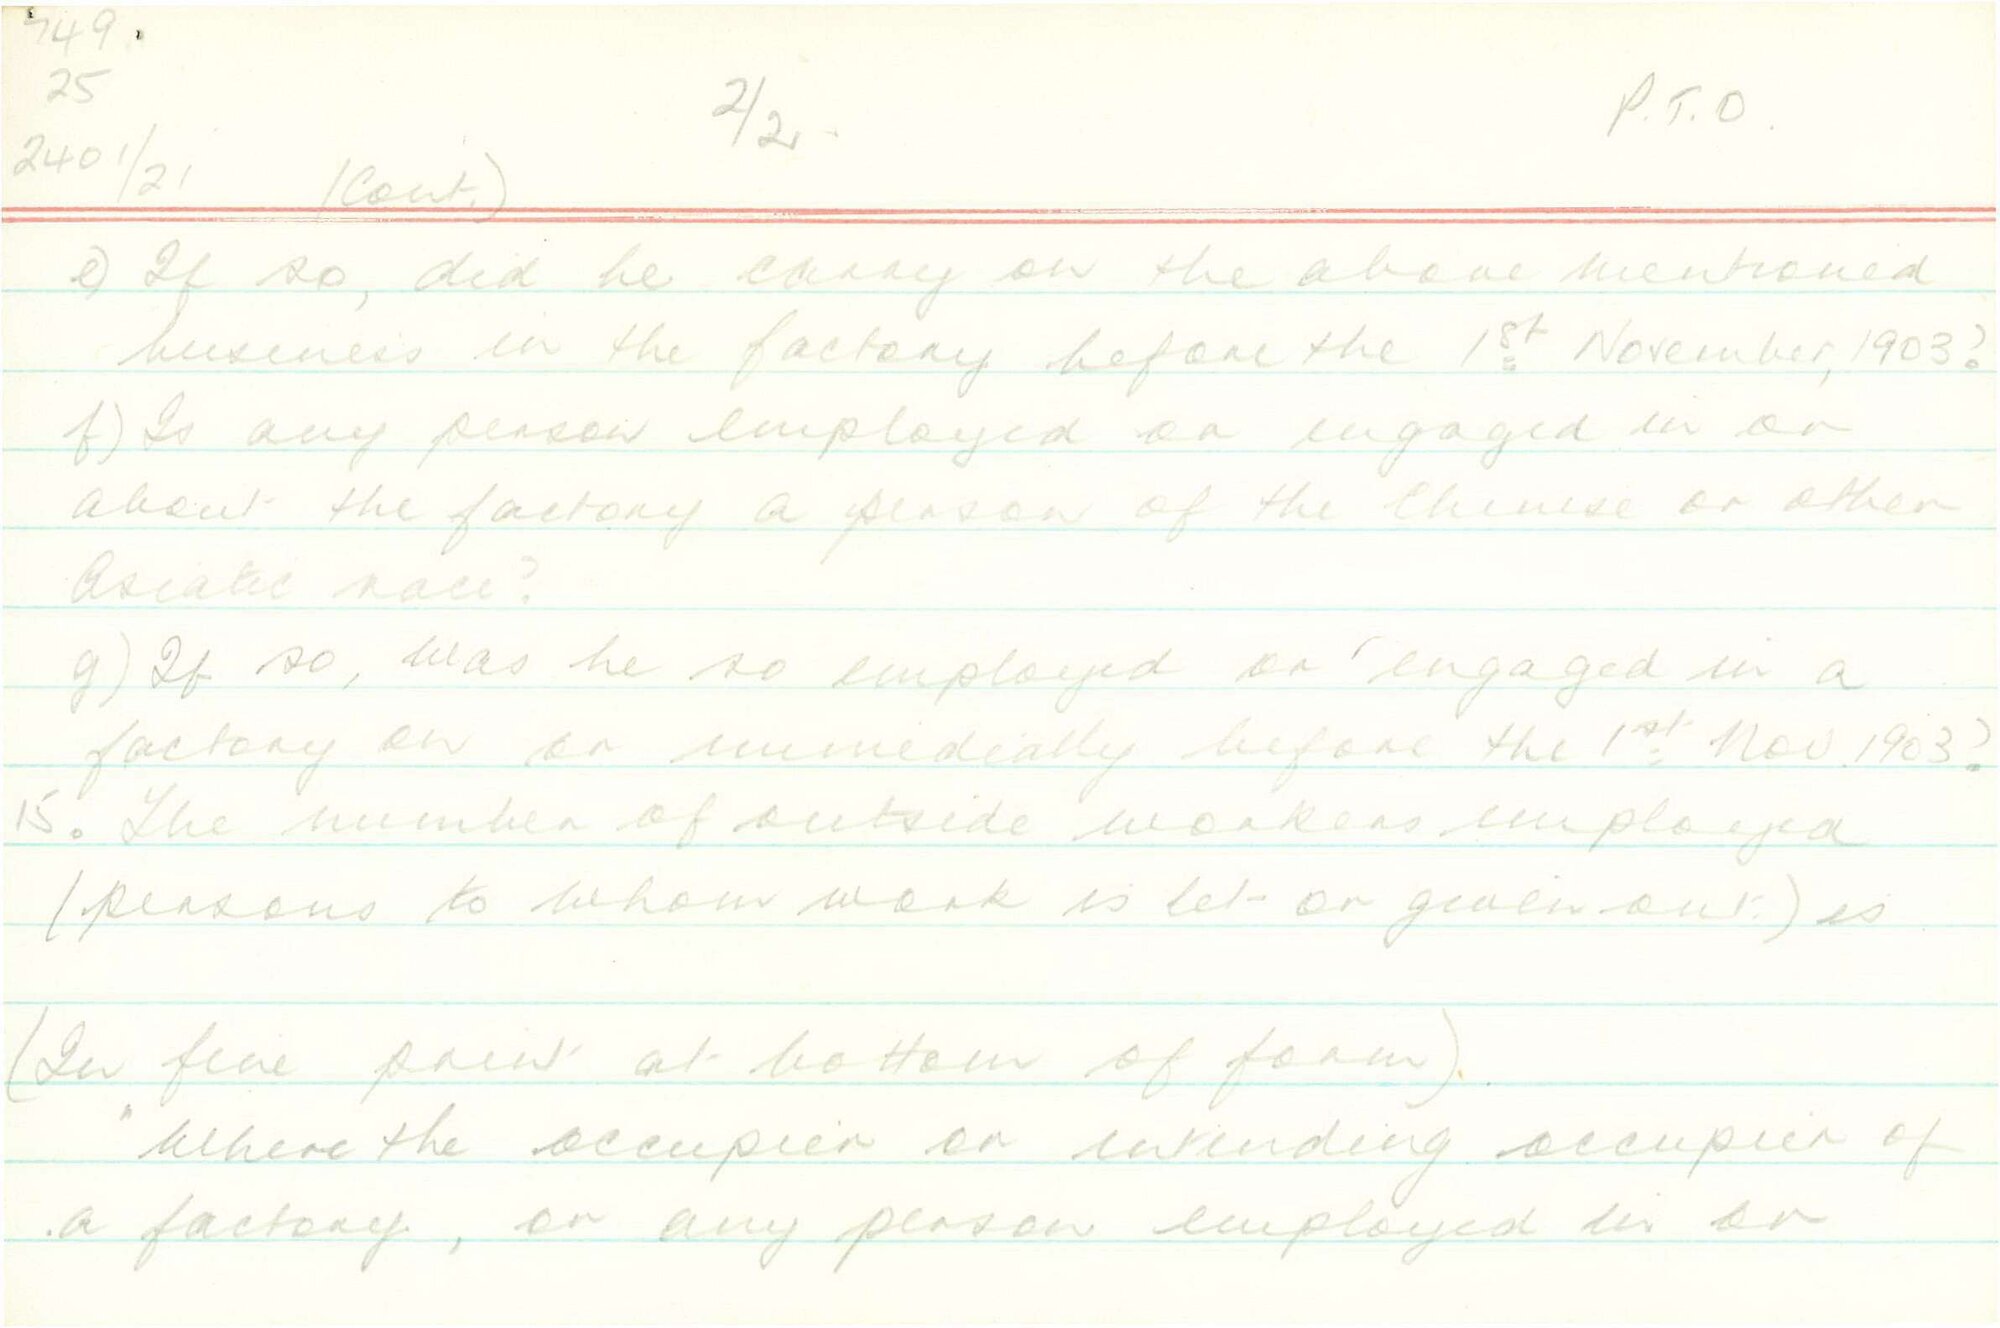 749.
25
2/2.
P.T.O.
2401/21 (Cont.)
e) If so, did he carry on the above mentioned
business in the factory before the 1st November, 1903?
f) Is any person employed or engaged in or
about the factory a person of the Chinese or other
Asiatic race?
g) If so, was he so employed or engaged in a
factory on or immediatly before the 1st Nov. 1903?
15. The number of outside workers employed
(persons to whom work is let or given out) is
(In fine print at bottom of form).
"Where the occupier or intending occupier of
a factory, or any person employed in or